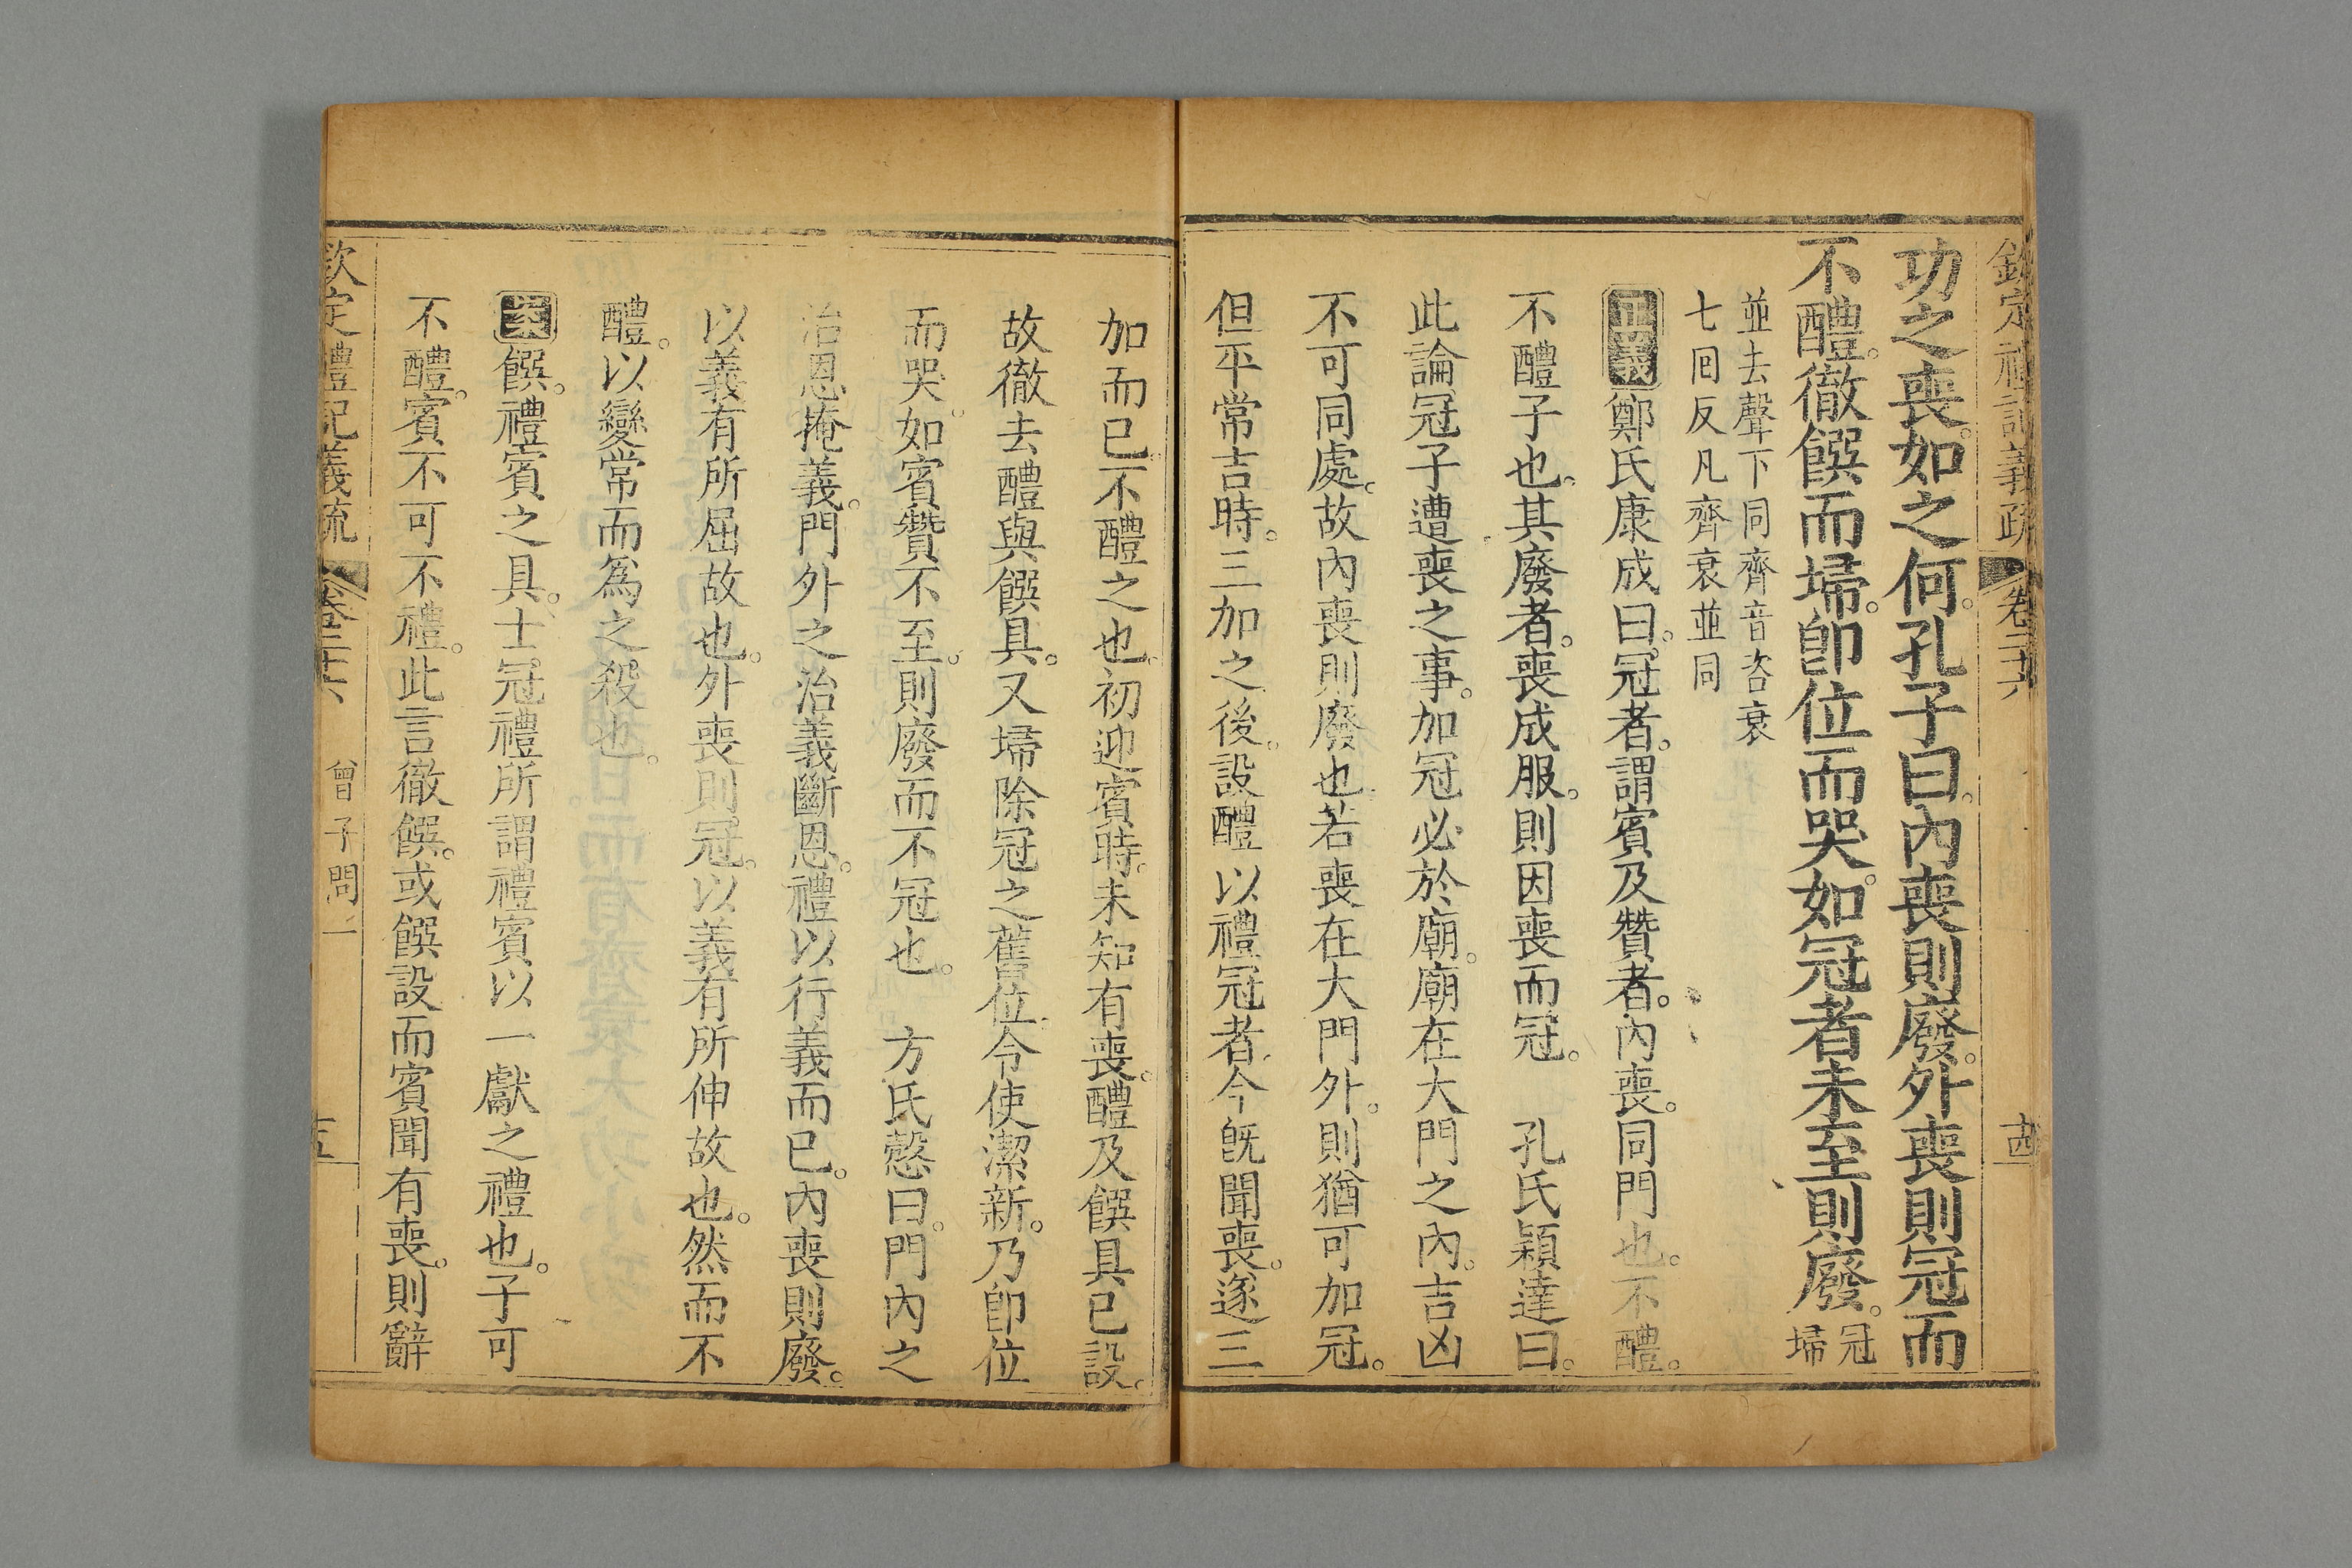 欽定禮記義疏 卷二十六 十四
功之喪。如之何。孔子曰。內喪則廢。外喪則冠而
不醴。徹饌而埽。卽位而哭。如冠者未至則廢。冠
埽
並去聲下同齊音咨衰
七回反凡齊衰並同
正義鄭氏康成曰。冠者。謂賓及贊者。內喪。同門也。不醴。
不醴子也。其廢者。喪成服。則因喪而冠。 孔氏穎達曰。
此論冠子遭喪之事。加冠必於廟。廟在大門之內。吉凶
不可同處。故內喪則廢也。若喪在大門外。則猶可加冠。
但平常吉時。三加之後。設醴以禮冠者。今旣聞喪。遂三
加而已。不醴之也。初迎賓時。未知有喪。醴及饌具已設。
故徹去醴與饌具。又埽除冠之舊位。令使潔新。乃卽位
而哭。如賓贊不至。則廢而不冠也。 方氏慤曰。門內之
治恩掩義。門外之治義斷恩。禮以行義而已。內喪則廢。
以義有所屈故也。外喪則冠。以義有所伸故也。然而不
醴。以變常而爲之殺也。
案饌。禮賓之具。士冠禮所謂禮賓以一獻之禮也。子可
不醴。賓不可不禮。此言徹饌。或饌設而賓聞有喪。則辭
欽定禮記義疏 卷二十六 曾子問一 十五